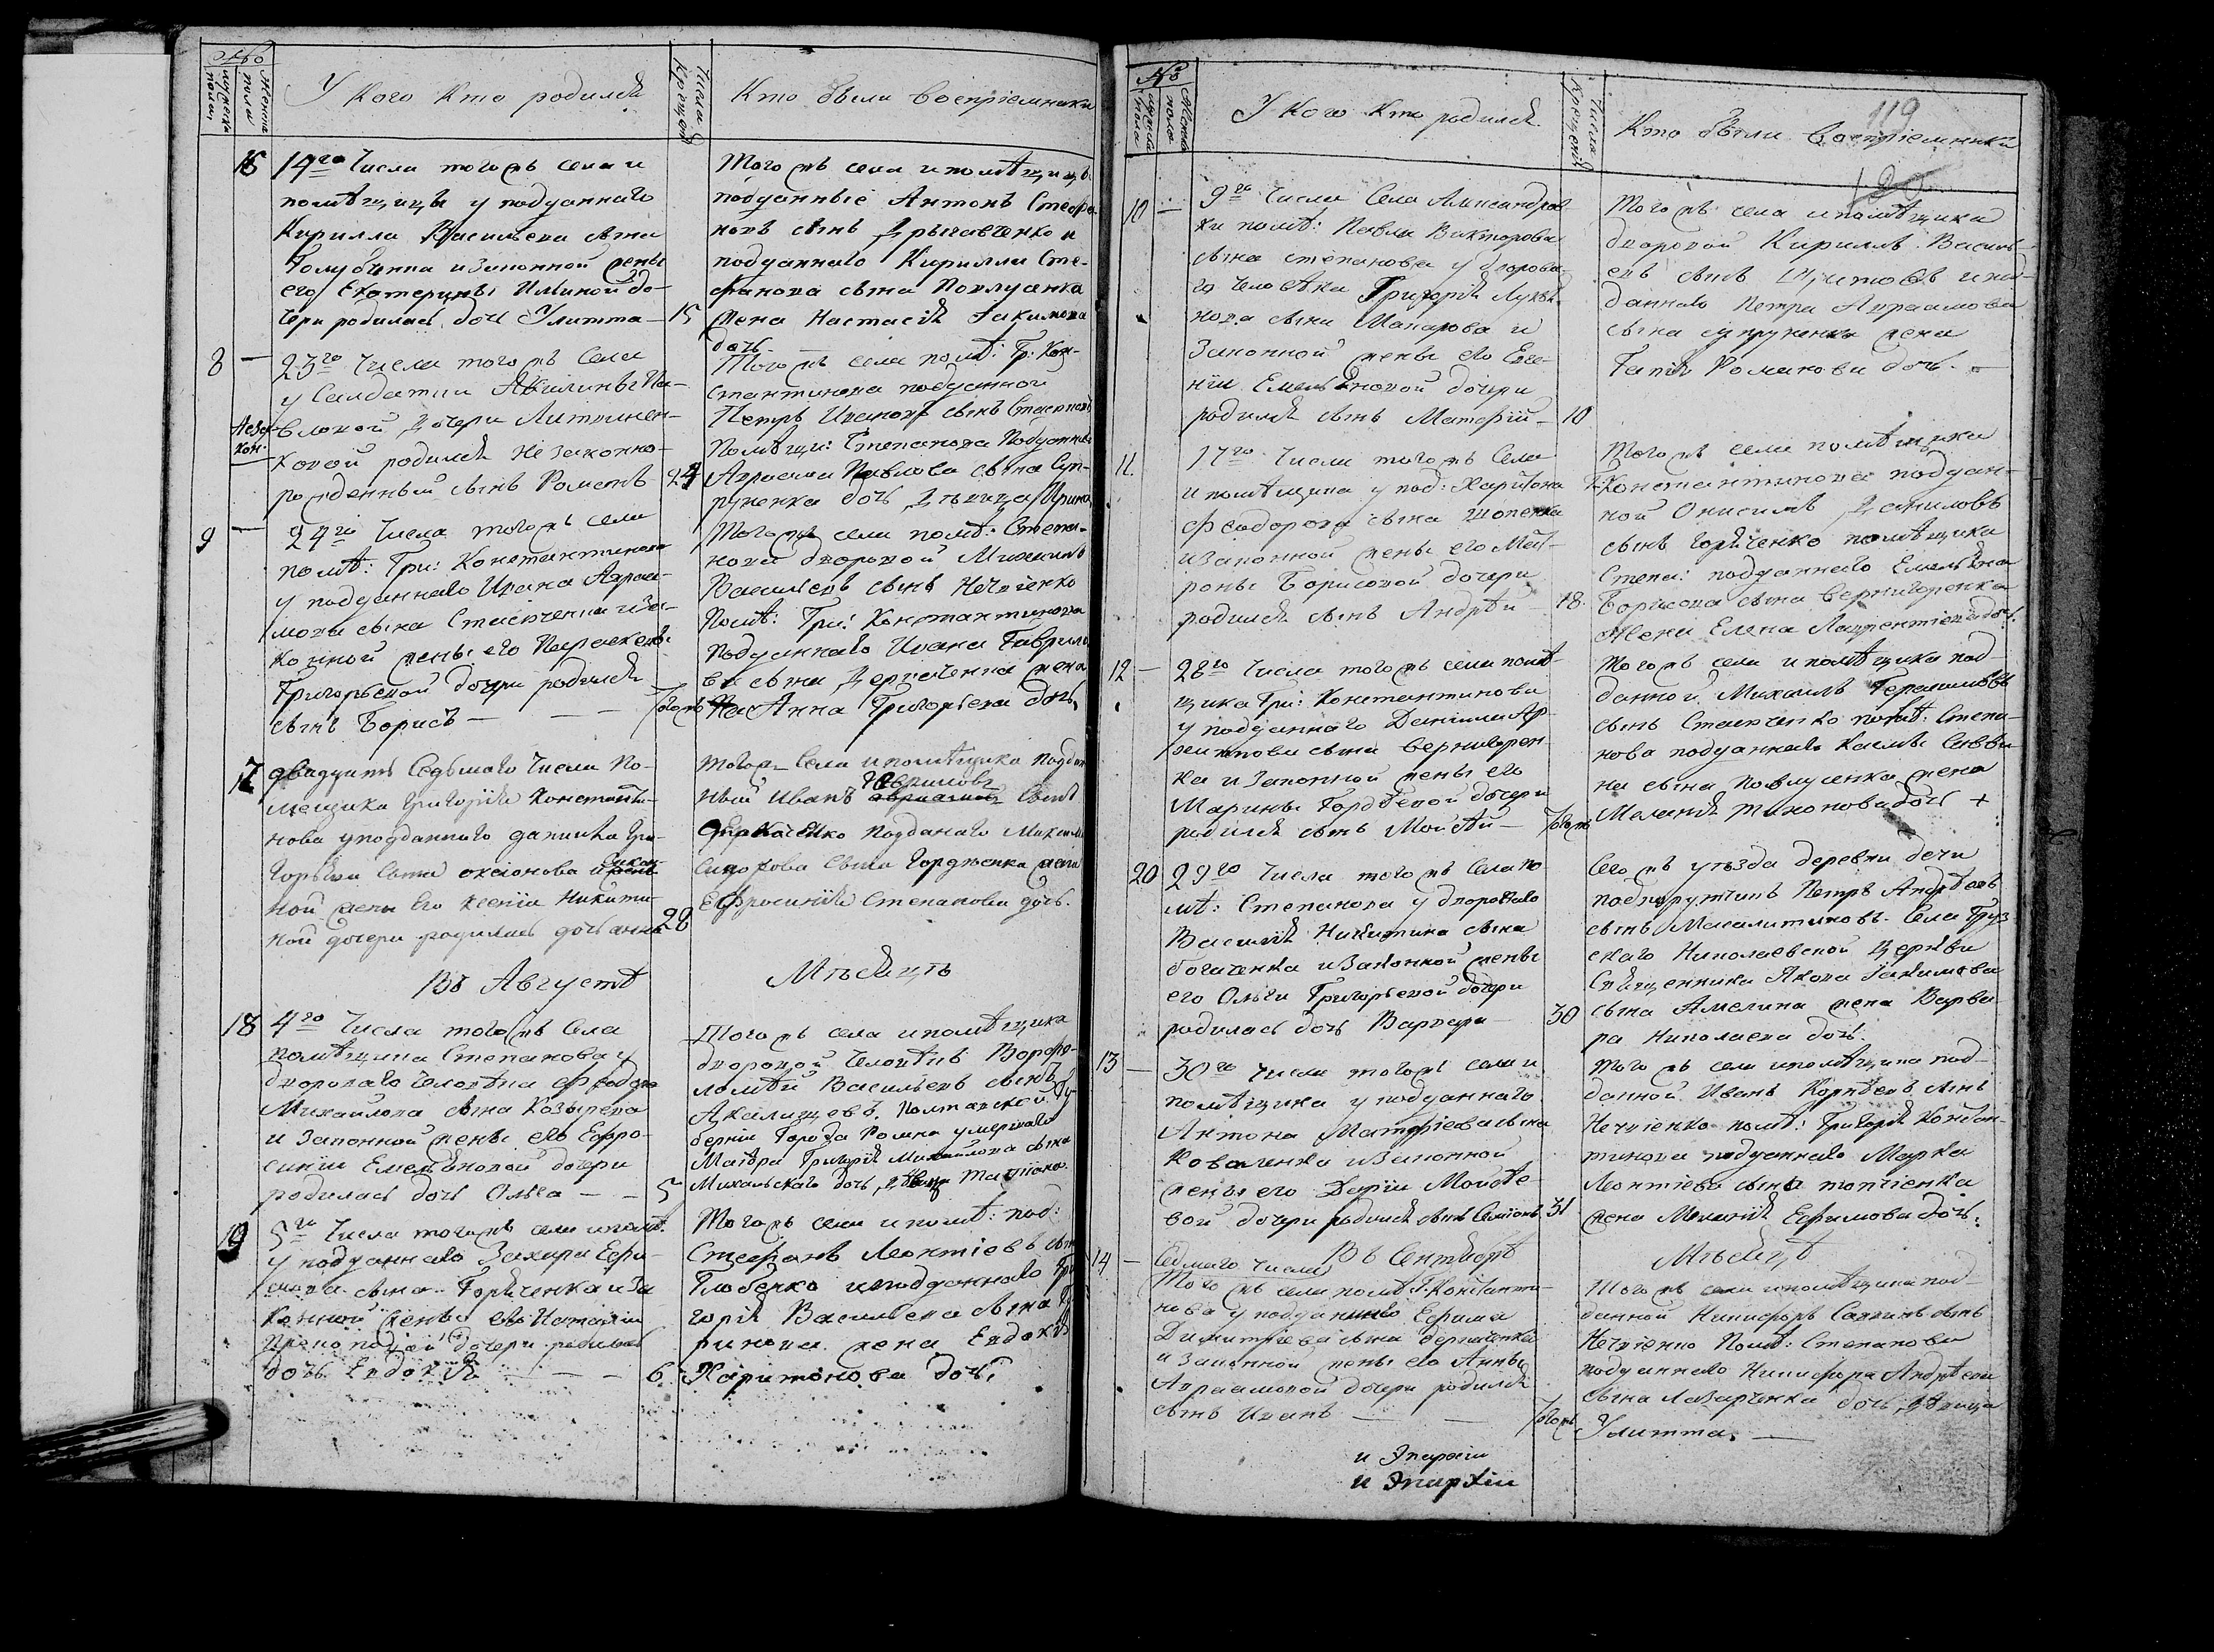 №
Женска пола
мужеска пола
У кого кто родился
Числа Крещенія
Кто были воспріемники
16
14го Числа того жъ села и
помѣщицы у подданнаго
Кирилла Васильева сына
Голубчика и законной жены
его Екатерины Илминой до-
чери родилась дочь Улитта —
15
Того жъ села и помѣщицы
подданные Антонъ Стефа-
новъ сынъ и
подданнаго Кирилла Сте-
фанова сына Павлуенка
жена Настасія Іакимова
дочь
8
—
Незакон.
23го Числа того жъ Села
у Салдатки Акилины Па-
вловой дочери Литвинен-
ковой родился не законно-
рожденный сынъ Романъ
24
Того жъ села помѣ: Гр: Кон-
стантинова подданной
Петръ Ивановъ сынъ
Помѣщи: Степанова Подданнаго
Авраама Павлова сына Суп-
руненка дочь Дѣвица Ирина
9
—
24го Числа того жъ села
помѣ: Гри: Константинова
у подданнаго Ивана Авраа-
мова сына Стасюченка и за-
конной жены его Параскевы
Григорьевой дочери родился
сынъ Борисъ — — —
Того жъ
Того жъ села помѣ: Степа-
нова дворовой Михаилъ
Васильевъ сынъ Нечаенко
Помѣ: Гри: Константинова
Подданнаго Ивана Гаврило-
ва сына Деркаченка жена
Анна Григорьева дочь
17
двадцать Седьмаго Числа По-
мещика Григорія Константи-
нова у подданнаго данила Гри-
горьева сына оксіонова и закон-
ной жены его ксеніи Никити-
ной дочери родилась дочь анна
28
того ж Села и помѣщика поддан
ный Иванъ Гавриловъ сынъ
деркаченко подданаго Михаила
Сидорова сына Гордѣенка жена
Ефросинія Степанова дочь.
Въ Августѣ
Мѣсяцѣ
18
4го Числа того жъ Села
помѣщика Степанова у
двороваго человѣка Феодора
Михайлова сына Козырева
и Законной жены его Ефро-
синіи Емельяновой дочери
родилась дочь Ольга — —
5
Того жъ села и помѣщика
дворовой Человѣкъ Ворфо-
ломѣй Васильевъ сынъ
Акалищевъ. Полтавской Гу-
берніи Города Ромна умершаго
Маіора Григорія Михайлова сына
Михальскаго дочь дѣвица Татіана
19
5го Числа того жъ села и помѣ.
у подданнаго Захара Ефи-
мова сына Горяченка и за
конной жены его Наталіи
дочери родилась
дочь Евдокія — — —
6
Того жъ села и помѣ: под:
Стефанъ Леонтіевъ сынъ
Глобенко и подданнаго Гри
горія Васильева сына
жена Евдокія
Харитонова дочь
№
Женска пола
мужеска пола
У кого кто родился
Числа Крещенія
Кто были Воспріемники
119
10 —
9го Числа Села Александров-
ки помѣ: Павла Викторова
сына степанова у дворова-
го человѣка Григорія Лукья-
нова сына Макарова и
Законной жены его Евге-
ніи Емельяновой дочери
родился сынъ Матфій —
10
Того жъ села и помѣщика
дворовой Кириллъ Василь-
евъ сынъ и под-
даннаго Петра Авраамова
сына супруненка жена
Гапія Романова дочь. —
11.
17го Числа того жъ Села
и помѣщика у под: Харитона
Феодорова сына Шопенка
и Законной жены его Мат-
роны Борисовой дочери
родился сынъ Андрѣй —
18.
Того жъ села помѣщика
Константинова поддан-
ной Онисимъ Даниловъ
сынъ Горяченко помѣщика
Степа: подданнаго Емельяна
Борисова сына Вернигоренка
жена Елена Лаврентіева дочь
12 —
28го Числа того жъ села помѣ-
щика Гри: Константинова
у подданнаго Даниила Ар-
хиппова сына Вернигорен-
ка и Законной жены его
Марины Гордѣевой дочери
родился сынъ Моисѣй —
Того жъ
Того жъ села и помѣщика под-
данной Михаилъ Герасимовъ
сынъ Стасюченко помѣ: Степа-
нова подданнаго Касьяна Савви-
на сына Павлуенка жена
Меланія Тихонова дочь +
20
29го Числа того жъ Села по-
мѣ: Степанова у двороваго
Василія Никитина сына
богаченка и Законной жены
его Ольги Григорьевой дочери
родилась дочь Варвара —
30
Сего жъ уѣзда деревни дечи
подпорутчикъ Петръ Андрѣевъ
сынъ Масалитиновъ. Села Груз
скаго Николаевской Церкви
Священника Якова Іакимова
сына Амелина жена Варва
ра Николаева дочь.
13 —
30го Числа того жъ села и
помѣщика у подданнаго
Антона Матфіева сына
Коваленка и Законной
жены его Даріи Моисѣе-
вой дочери родился сынъ Семіонъ
31
Того жъ села и помѣщика под-
данной Иванъ Корнѣевъ сынъ
Нечаенко помѣ: Григорія Констан-
тинова подданнаго Марка
Леонтіева сына топчіенка
жена Меланія Ефимова дочь.
Въ Сентябрѣ
Мѣсяцѣ
14 —
Седмаго Числа
Того жъ села помѣ: Г. Константи-
нова у подданнаго Ефима
Димитріева сына Деркаченка
и Законной жены его Анны
Авраамовой дочери родился
сынъ Иванъ — —
Того жъ
Того жъ села и помѣщика под-
данной Никифоръ Саввинъ сынъ
Нечаенко Помѣ: Степанова
подданнаго Никифора Андрѣева
сына Лазаренка дочь дѣвица
Улитта. —
и Эпархіи
и Эпархіи